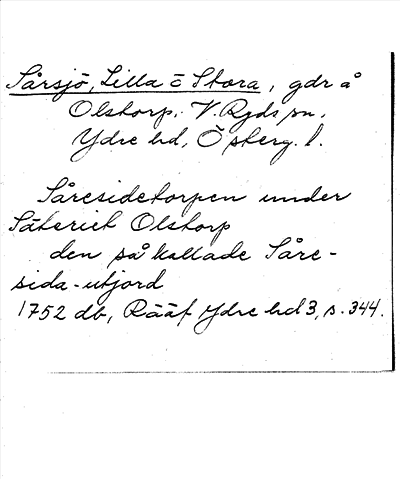 Sårsjö, Lilla o Stora, gdr å
Olstorp. V. Ryds sn.
Ydre hd, Ö sterg. l.
Såresidetorpen under
Säteriet Olstorp
den så kallade Såre-
sida-utjord
1752 db, Rääf Ydre hd 3, s. 344.